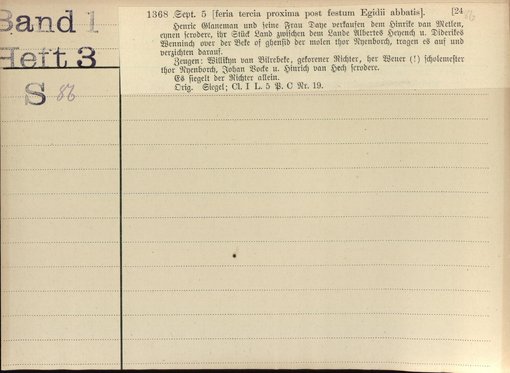 Band 1
Heft 3
S 86
1368 Sept. 5 [feria tercia proxima post festum Egidii abbatis]. [24
86
Henric Glaneman und seine Frau Daye verkaufen dem Hinrike van Metlen,
eynen scrodere, ihr Stück Land zwischen dem Lande Albertes Heynch u. Diderikes
Wenninch over der Beke of ghensid der molen thor Nyenborch, tragen es auf und
verzichten darauf.
Zeugen: Willikyn van Bilrebeke, gekorener Richter, her Wener (!) scholemester
thor Nyenborch, Johan Bocke u. Hinrich van Hech scrodere.
Es siegelt der Richter allein.
Orig. Siegel; Cl. I L. 5 P. C Nr. 19.